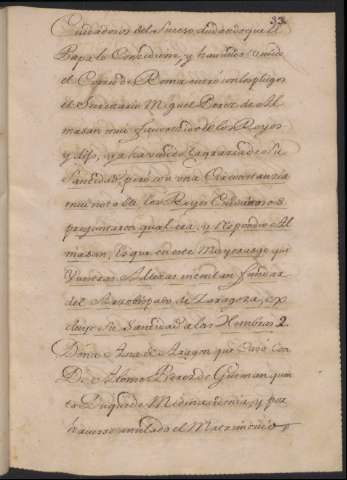 33
Cuidadosos del Suceso dudando que el
Papa lo Concediese, y haviendo venido
el Correo de Roma entró con los pliegos
el Secretario Miguel Perez de Al
masan mui favorecido de los Reyes
y dijo, ya havemos la gracia de Su
Santidad, pero con una Circunstanzia
mui notable los Reyes Cuidadosos
preguntaron qual era, y Respondió Al
masan, lo que en este Mayorazgo que
Vuestras Altezas intentan fundar
del Arzobispado de Zaragoza, ex
cluye Su Santidad a las Hembras 2.
Dona Ana de Aragon que Casó con
Dn. Alonso Perez de Guzman, quin
to Duque de Medinasidonia, y por
haverse anulado el Matrimonio